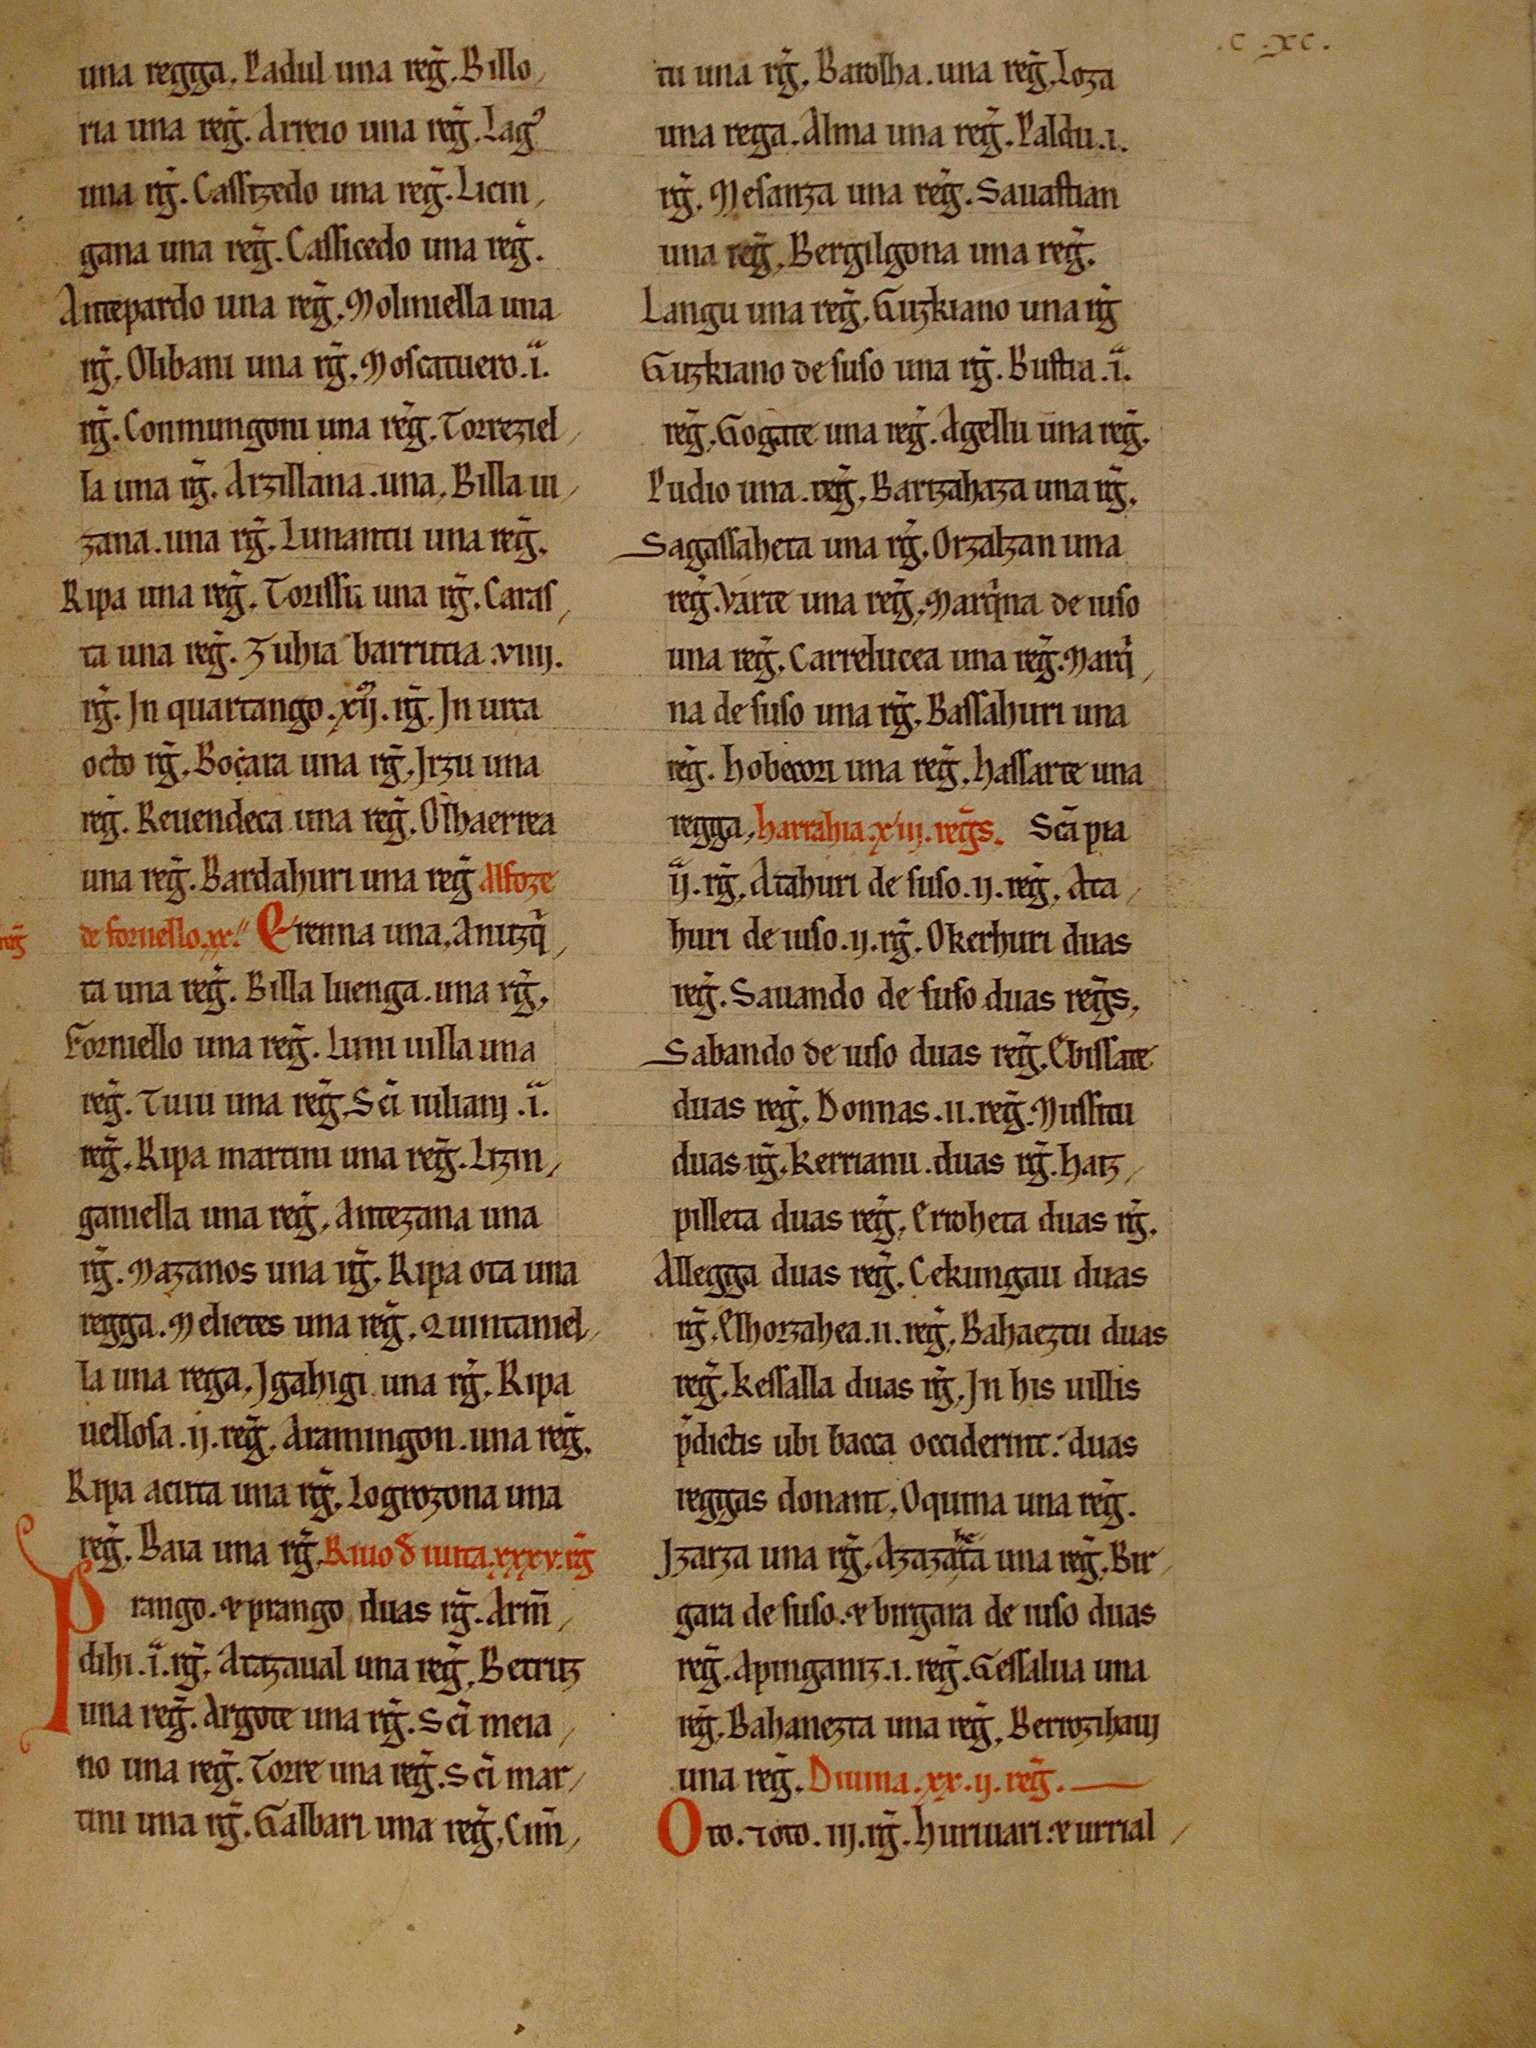 .c.xc.
una regga. Padul una reg̃. Billo
ria una reg̃. Arreio una reg̃. Lagꝰ
una rg̃. Cassizedo una reg̃. Licin
gana una reg̃. Cassicedo una reg̃.
Antepardo una reg̃. Moliniella una
rg̃. Olibani una rg̃. Moscatuero .iᵃ.
rg̃. Conmungoni una reg̃. Torreziel
la una rg̃. Arzillana .una. Billa ui
zana .una rg̃. Lunantu una reg̃.
Ripa una reg̃. Torissu una rg̃. Caras
ta una reg̃. Zuhia barrutia .viiij.
rg̃. In quartango .xij. rg̃. In urca
octo rg̃. Boçara una rg̃. Irzu una
reg̃. Reuendeca una reg̃. Olhaerrea
una reg̃. Bardahuri una reg̃ Alfoze
de fornello .xx. reg̃ Erenna una. Anuzq̃
ta una reg̃. Billa luenga .una rg̃.
Forniello una reg̃. Luni uilla una
reg̃. Tuiu una reg̃. Sc̃i iulianj .iᵃ.
reg̃. Ripa martini una reg̃. Lizin
ganiella una reg̃. Antezana una
rg̃. Mazanos una rg̃. Ripa ota una
regga. Melietes una reg̃. Quintaniel
la una rega. Igahigi una rg̃. Ripa
uellosa .ij. reg̃. Aramingon .una reg̃.
Ripa acuta una rg̃. Logrozona una
reg̃. Baia una rg̃. Riuo đ iuita .xxxv. rg̃
Prango. & prango duas rg̃. Arm̃
dihi .iᵃ. rg̃. Atazaual una reg̃. Betruz
una reg̃. Argote una rg̃. Sc̃i meia
no una reg̃. Torre una reg̃. Sc̃i mar
tini una rg̃. Galbari una reg̃. Cim̃
tu una rg̃. Barolha .una reg̃. Loza
una rega. Alma una reg̃. Paldu .i.
rg̃. Mesanza una reg̃. Sauastian
una reg̃. Bergilgona una reg̃.
Langu una reg̃. Guzkiano una rg̃
Guzkiano de suso una rg̃. Bustia .iᵃ.
reg̃. Gogate una reg̃. Agellu una reg̃.
Pudio una .reg̃. Bartzahaza una rg̃.
Sagassaheta una rg̃. Orzalzan una
reg̃. Varte una reg̃. Marq̃na de iuso
una reg̃. Carrelucea una reg̃. Marq̃
na de suso una rg̃. Bassahuri una
reg̃. hobecori una reg̃. hassarte una
regga. harrahia .xiii. reg̃s. Sc̃i pia
ij. rg̃. Atahuri de suso .ij. reg̃. Ata
huri de iuso .ij. rg̃. Okerhuri duas
reg̃. Sauando de suso duas reg̃s.
Sabando de iuso duas reg̃. Ebissate
duas reg̃. Donnas .ii. reg̃. Mussitu
duas rg̃. kerrianu .duas rg̃. hatz
pilleta duas reg̃. Erroheta duas rg̃.
Allegga duas reg̃. Cekungau duas
rg̃. Elhorzahea .ii. reg̃. Bahaeztu duas
reg̃. kessalla duas rg̃. In his uillis
p̃dictis ubi bacca occiderint: duas
reggas donant. Oquina una reg̃.
Izarza una rg̃. Azazaheta una reg̃. Bir
gara de suso. & birgara de iuso duas
reg̃. Apinganiz .i. reg̃. Gessalua una
reg̃. Bahanezta una reg̃. Berrozihauj
una reg̃. Diuina .xx.ij. reg̃.
Oto. ⁊ oto. iij. rg̃. huriuari. & urrial